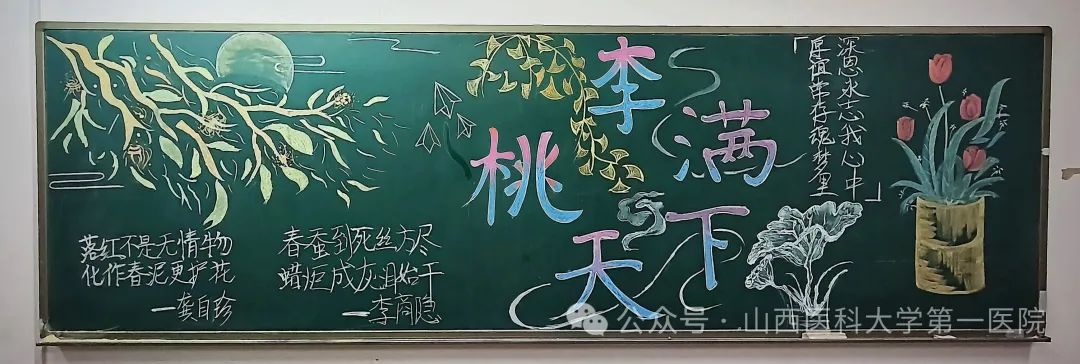 桃李满天下
「深恩永志我心中
厚谊常存魂梦里」
落红不是无情物
化作春泥更护花
—龚自珍
春蚕到死丝方尽
蜡炬成灰泪始干
—李商隐
公众号·山西医科大学第一医院